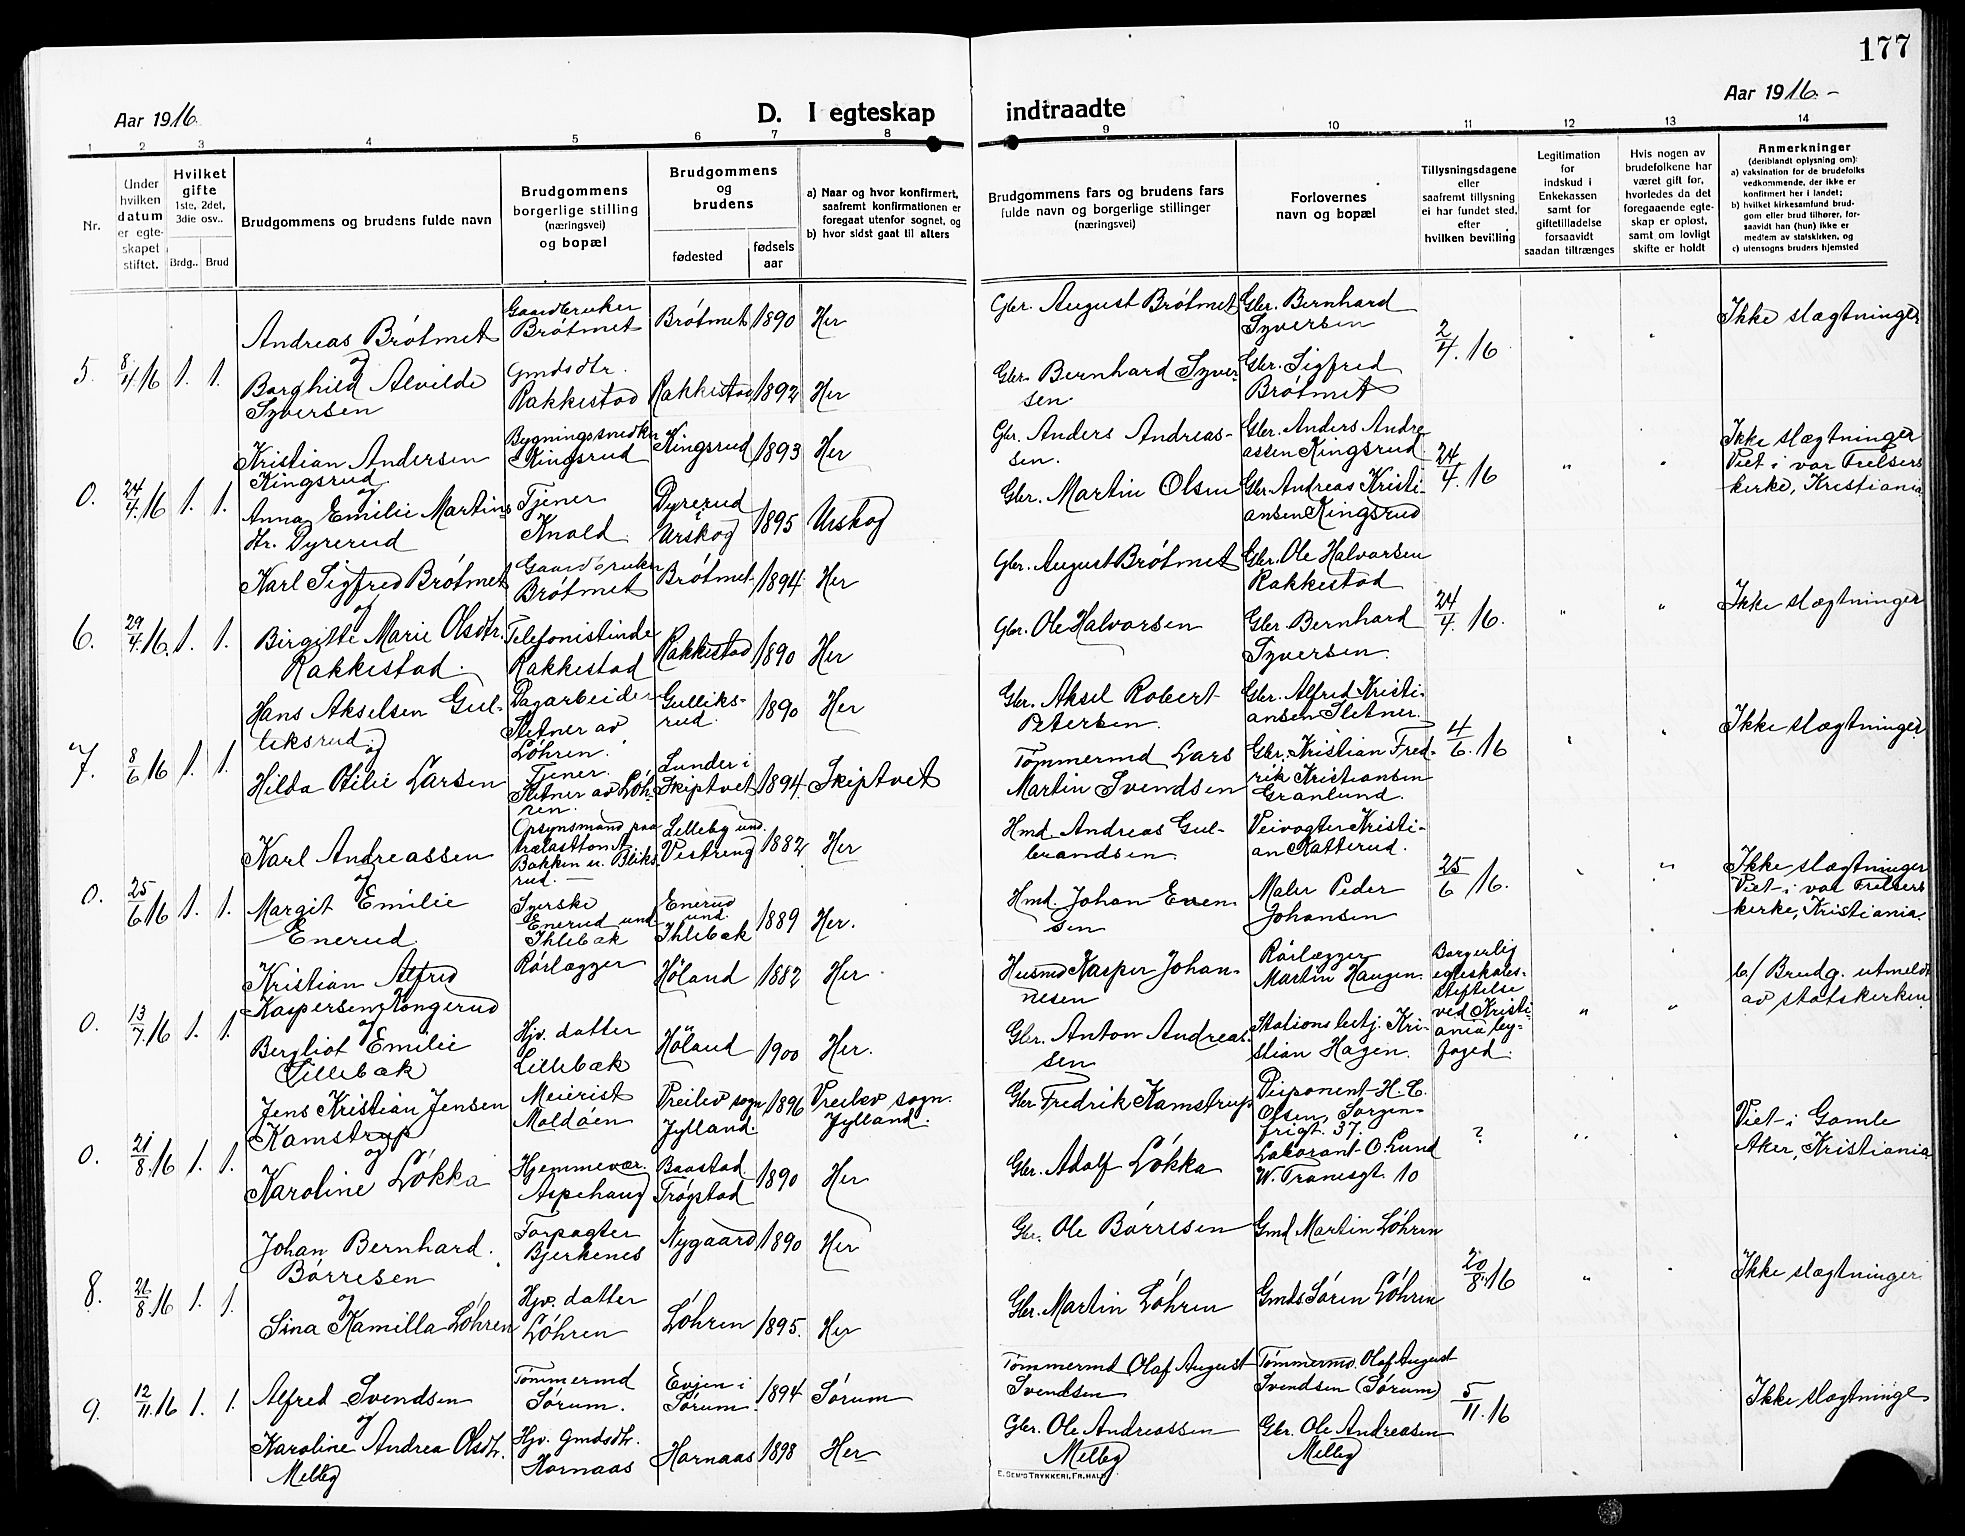 177
Aar 1916.
D. I egteskap indtraadte
Aar 1916.-
1 2 3 4 5 6 7 8 9 10 11 12 13 14
Nr.
Under hvilken datum er egteskapet stiftet.
Hvilket gifte 1ste, 2det, 3die osv..
Brdg.. Brud
Brudgommens og brudens fulde navn
Brudgommens borgerlige stilling (næringsvei) og bopæl
Brudgommens og brudens
fødested
fødselsaar
a) Naar og hvor konfirmert, saafremt konfirmationen er foregaat utenfor sognet, og
b) hvor sidst gaat til alters
Brudgommens fars og brudens fars fulde navn og borgerlige stillinger (næringsvei)
Forlovernes navn og bopæl
Tillysningsdagene eller saafremt tillysning ei har fundet sted, efter hvilken bevilling
Legitimation for indskud i Enkekassen samt for giftetilladelse forsaavidt saadan tiltrænges
Hvis nogen av brudefolkene har været gift før, hvorledes da det foregaaende egteskap er opløst, samt om lovligt skifte er holdt
Anmerkninger (deriblandt oplysning om):
a) vaksination for de brudefolks vedkommende, der ikke er konfirmert her i landet;
b) hvilket kirkesamfund brudgom eller brud tilhører, forsaavidt han (hun) ikke er medlem av statskirken, og
c) utensogns bruders hjemsted
5. 8/4 16 1. 1.
Andreas Brötmet
og
Borghild Alvilde
Syversen
Gaardbruker
Brötmet
Gmdsdtr.
Rakkestad
Brötmet 1890 Her
Rakkestad 1892 Her
Gbr. August Brötmet
Gbr. Bernhard Syversen.
Gbr. Bernhard
Syversen
Gbr. Sigfred
Brötmet
2/4. 16
Ikke slægtninger
0. 24/4. 16 1. 1.
Kristian Andersen
Kingsrud
og
Anna Emilie Martins
dtr. Dyrerud
Bygningssnedker
Kingsrud
Tjener
Knold.
Kingsrud 1893 Her
Dyrerud
Urskog 1895 Urskog
Gbr. Anders Andreassen.
Gbr. Martin Olsen
Gbr. Anders Andreassen Kingsrud
Gbr. Andreas Kristiansen Kingsrud
24/4. 16
Ikke slægtninger
Viet i vor Frelsers
kirke, Kristiania
6. 29/4. 16. 1. 1.
Karl Sigfred Brötmet
og
Birgitte Marie Olsdtr.
Rakkestad.
Gaardbruker
Brötmet
Telefonistinde
Rakkestad
Brötmet 1894 Her
Rakkestad 1890 Her
Gbr. August Brötmet
Gbr. Ole Halvorsen
Gbr. Ole Halvorsen
Rakkestad
Gbr. Bernhard
Syversen.
24/4. 16.
Ikke slægtninger
7. 8/6 16 1. 1.
Hans Akselsen Gulliksrud
og
Hilda Otilie Larsen
Dagarbeider
Sletner av
Löhren.
Tjener.
Sletner av Löhren.
Gulliksrud. 1890 Her
Lunder i
Skiptvet 1894. Skiptvet
Gbr. Aksel Robert
Petersen.
Tömmermd Lars
Martin Svendsen
Gbr. Alfred Kristiansen Sletner.
Gbr. Kristian Fredrik Kristiansen
Granlund.
4/6. 16
Ikke slægtninger
0. 25/6 16 1. 1.
Karl Andreassen
og
Margit Emilie
Enerud.
Opsynsmand paa
trælasttomt
Bakken u. Bliksrud.
Syerske
Enerud und
Ihlebæk
Lilleby und.
Vestreng 1882 Her
Enerud
und.
Ihlebæk 1889 Her.
Hmd. Andreas Gulbrandsen.
Hmd. Johan Evensen
Veivogter Kristian Katterud.
Maler Peder
Johansen
25/6 16.
Ikke slægtninger
Viet i vor Frelsers
kirke, Kristiania.
0. 13/7. 16 1. 1.
Kristian Alfred
Kaspersen Kongerud
og
Bergliot Emilie
Lillebæk
Rörlægger
Hjv. datter
Lillebæk
Höland 1882 Her
Höland 1900 Her.
Husmd Kasper Johannesen
Gbr. Anton Andreassen
Rörlægger
Martin Haugen.
Stationsbetj. Kristian Hagen.
Borgerlig
egteskabsstiftelse
ved Kristiania byfoged.
b/ Brudg. utmeldt
av statskirken
0. 21/8. 16 1. 1.
Jens Kristian Jensen
Kamstrup
og
Karoline Lökka
Meierist
Moldöen
Hjemmevær.
Aspehaug
Vreilev sogn
Jylland. 1896 Vreilev sogn.
Jylland.
Baastad
Trögstad 1890 Her
Gbr Fredrik Kamstrup
Gbr. Adolf Lökka
Disponent H. C.
Olsen, Sorgenfrigt. 37.
O. Lund
W. Tranesgt. 10
?
Viet i Gamle
Aker, Kristiania
8. 26/8. 16 1. 1.
Johan Bernhard.
Börresen
og
Sina Kamilla Löhren
Forpagter
Bjerkenes
Hjv. datter
Löhren
Nygaard 1890 Her
Löhren 1895. Her
Gbr. Ole Börresen
Gbr. Martin Löhren
Gmd Martin Löhren
Gmds Sören Löhren
20/8. 16
Ikke slægtninger
9. 12/11. 16 1. 1.
Alfred Svendsen
og
Karoline Andrea Olsdtr.
Melleg
Tömmermd
Sörum.
Hjv. Gmdsdtr.
Hornaas
Evjen i
Sörum. 1894 Sörum
Hornaas 1898 Her
Tömmermd Olaf August
Svendsen
Gbr. Ole Andreassen
Melleg
Tömmermd. Olaf August
Svendsen (Sörum)
Gbr. Ole Andreasen
Melleg
5/11. 16
Ikke slægtninge
E. SEM'S TRYKKERI, FR.HALD